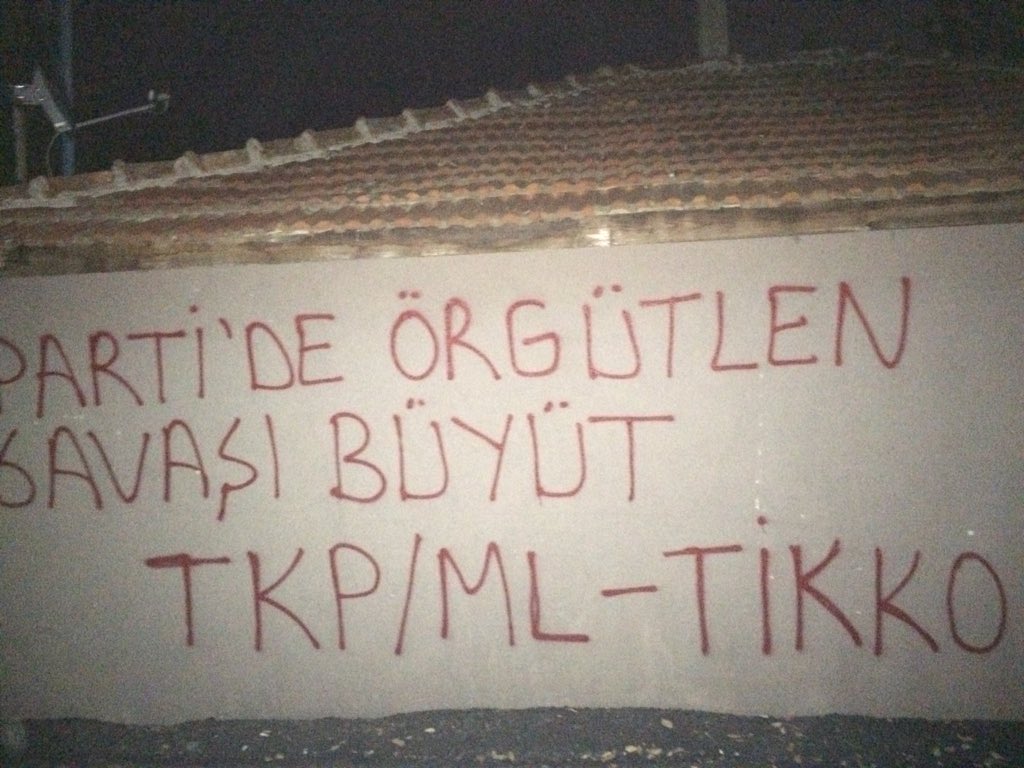 PARTİ'DE ÖRGÜTLEN
SAVAŞI BÜYÜT
TKP/ML-TİKKO